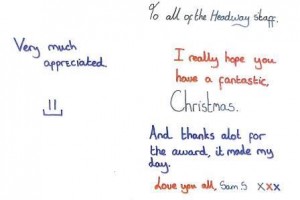 % all of the Headway staff.
Very much
appreciated
I really hope you
have a fantastic
Christmas.
And thanks alot for
the award, it made my
day.
Love you all, Sam.S xxx